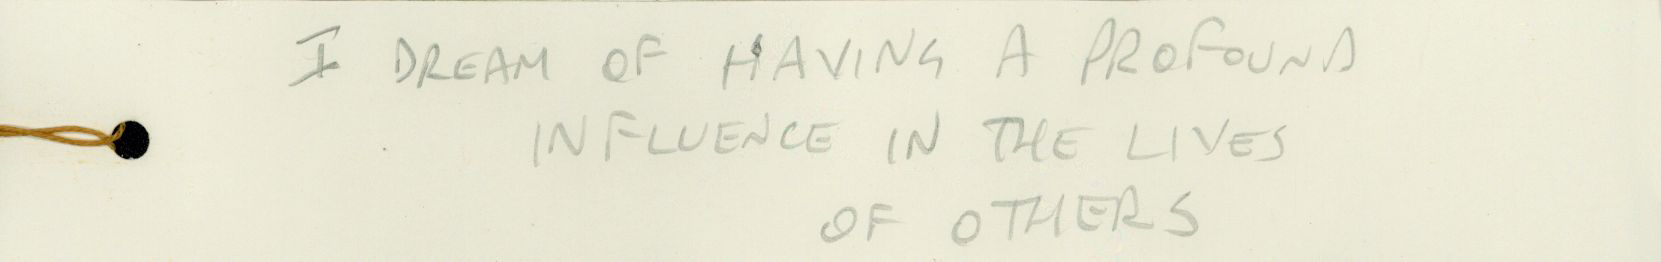 I DREAM OF HAVING A PROFOUND
INFLUENCE IN THE LIVES
OF OTHERS